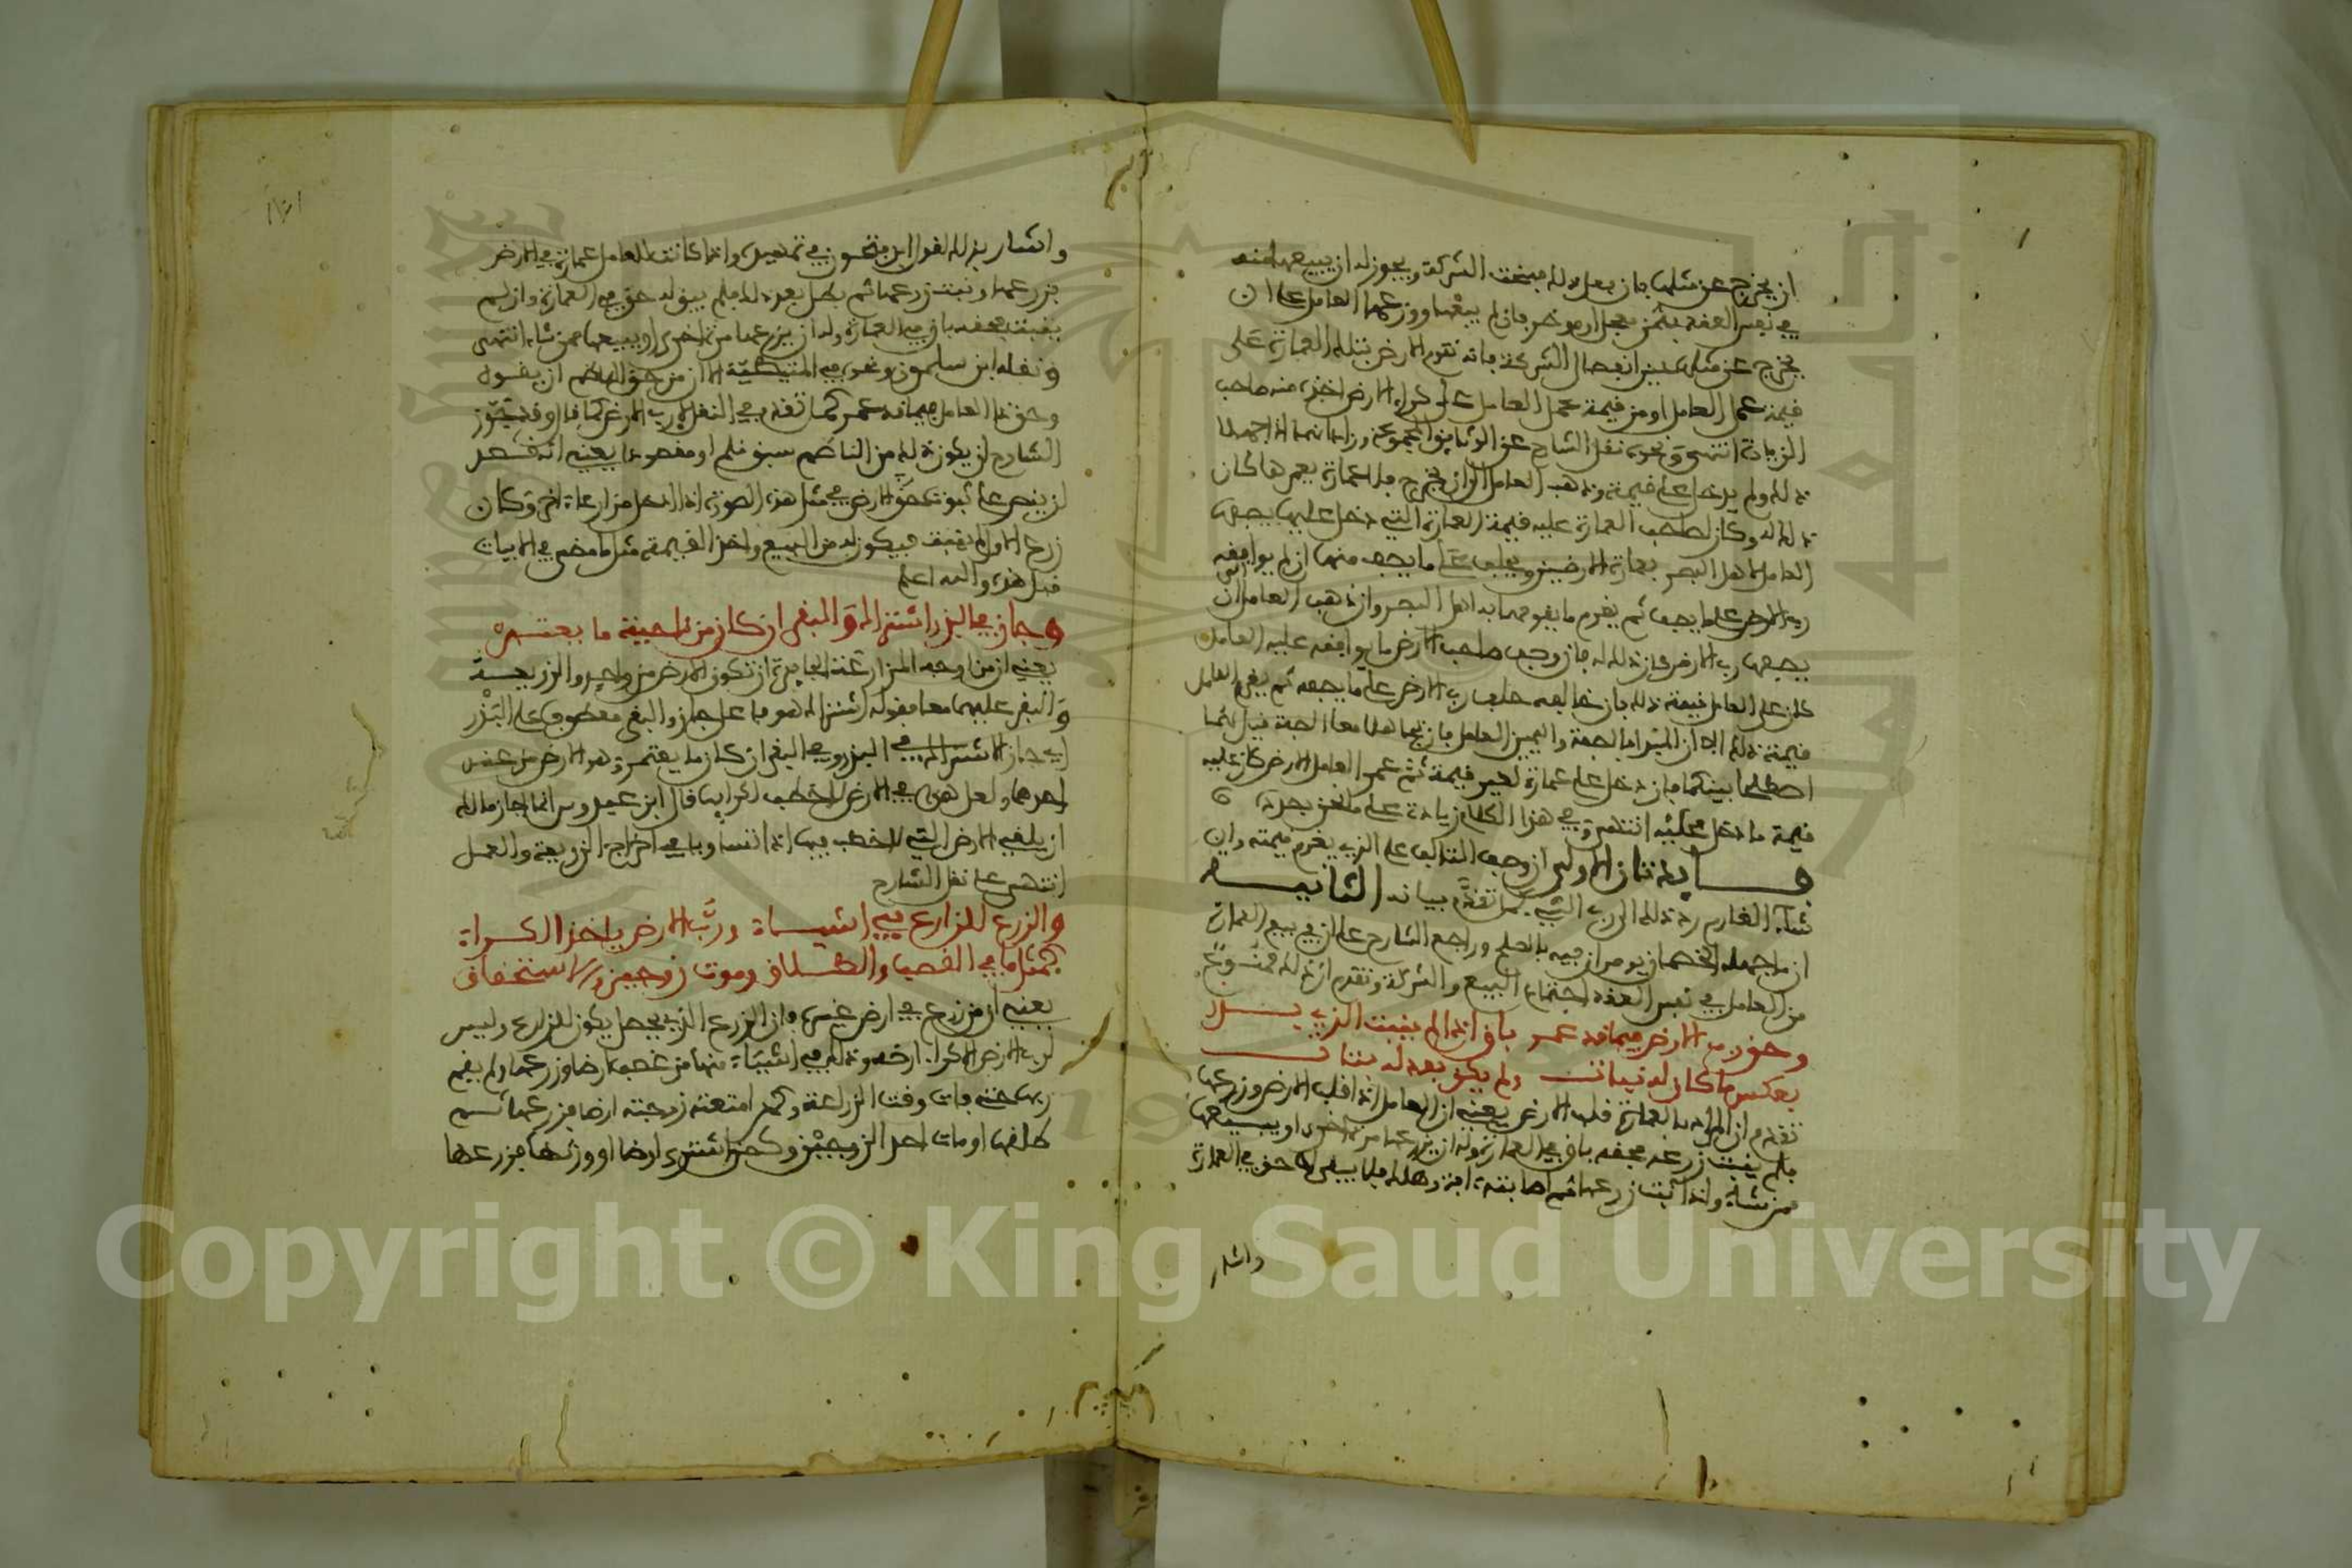 ان يخرج عن مثلها فان فعل ذلك فسخت الشركة ويجوز له ان يبيعها منه
في نفس العقد بثمن معجل او موخر فان لم يبعها وزرعها العامل على ان
يخرج عن مثلها عند انفصال الشركة فانه تقوم الارض بتلك العمارة على
قيمة عمل العامل او من قيمة عمل العامل على كراء الارض اخذه منه صاحب
الزيادة انتهى ونحوه نقل الشارح عن الوثائق المجموعة وزاد انهما اذا جهلا
ذلك ولم يدخل على قيمة وذهب العامل الى ان يخرج بلا عمارة يعمرها كان
ذلك له وكان لصاحب العمارة عليه قيمة العمارة التي دخل عليها يصفها
العامل لاهل البصر بعمارة الارضين ويحلف على ما يصف منها ان لم يوافقه
رب الارض على ما يصف ثم يغرم ما يقومها به اهل البصر وان ذهب العامل الى ان
يصفها رب الارض فان ذلك له فان وصف صاحب الارض ما يوافقه عليه العامل
كان على العامل قيمة ذلك فان خالفه حلف رب الارض على ما يصفه ثم يغرم العامل
قيمة ذلك الا ان
اصطلحا بينكما فان دخل على عمارة لغير قيمة ثم عمر العامل الارض كان عليه
قيمة ما دخل عليه انتهى وفي هذا الكلام زيادة على ما نحن بصدده
فايدتان الاولى ان وصف التالف على الذي يغرم قيمته وان
شاء الغارم رد ذلك الى رب الشيء كما تقدم بيانه الثانية
ان ما جهله الخصمان يومران فيه بالصلح وراجع الشارح على ان في بيع العمارة
من العامل في نفس العقد اجتماع البيع والشركة وتقدم ان ذلك ممنوع
وحق رب الارض فيما قد عمر باق اذا لم ينبت الذي بذر
بعكس ما كان له نبات ولم يكن بعد له ثبات
تقدم ان المراد بالعمارة قلب الارض يعني ان العامل اذا قلب الارض وزرعها
فلم ينبت زرعه فحقه باق في العمارة وله ان يزرعها مرة اخرى او يبيعها
ممن شاء واذا نبت زرعها ثم اصابته افة وهلك فلا يبقى له حق في العمارة
واشار
واشار بذلك لقول ابن فتحون في تمهيل واذا كانت للعامل عمارة في الارض
فزرعها ونبت زرعها ثم بطل بعد ذلك فلم يبق له حق في العمارة وان لم
ينبت فحقه باق في العمارة وله ان يزرعها مرة اخرى او يبيعها ممن شاء انتهى
ونقله ابن سلمون ونحوه في المتيطية الا ان من حق الناظم ان يقول
وحق ذا العامل فيما قد عمر كما تقدم في النقل لا رب الارض كما قال وقد تجوز
الشارح ان يكون ذلك من الناظم سبق قلم او مقصودا يعني انه قصد
ان ينص على ثبوت حق الارض في مثل هذه الصورة اذا دخل مزارعا اخر وكان
زرع الاول لم ينبت فيكون له من البيع واخذ القيمة مثل ما مضى في الابيات
قبل هذه والله اعلم
وجاز في البذر اشتراك والبقر ان كان من ناحية ما يعتمر
يعني ان من اوجه المزارعة الجايزة ان تكون الارض من واحد والزريعة
والبقر عليهما معا فقوله اشتراك هو فاعل جاز والبقر معطوف على البذر
اي جاز الاشتراك في البذر وفي البقر ان كان ما يعتمر وهو الارض من عند
احدهما ولعل هذا في الارض لا خطب لكرايها قال ابن عبدوس انما اجاز مالك
ان يلغي الارض التي لا خطب فيها اذا تساويا في اخراج الزريعة والعمل
انتهى على نقل الشارح
والزرع للزارع في اشياء ورب الارض ياخذ الكراء
كمثل ما في الغصب والطلاق وموت زوجين والاستحقاق
يعني ان من زرع في ارض غيره فان الزرع الذي يحصل يكون للزارع وليس
لرب الارض الا كراء ارضه وذلك في اشياء منها من غصب ارضا وزرعها ولم يقم
ربها حتى فات وقت الزراعة وكمن امتعته زوجته ارضا فزرعها ثم
طلقها او مات احد الزوجين وكمن اشترى ارضا او ورثها فزرعها
Copyright © King Saud University